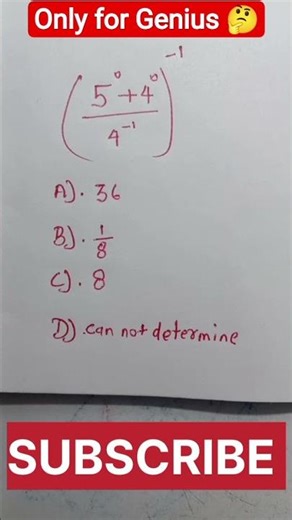 Only for Genius 🤔
(5⁰+4⁰/4⁻¹)⁻¹
A). 36
B). 1/8
C). 8
D) .can not determine
SUBSCRIBE